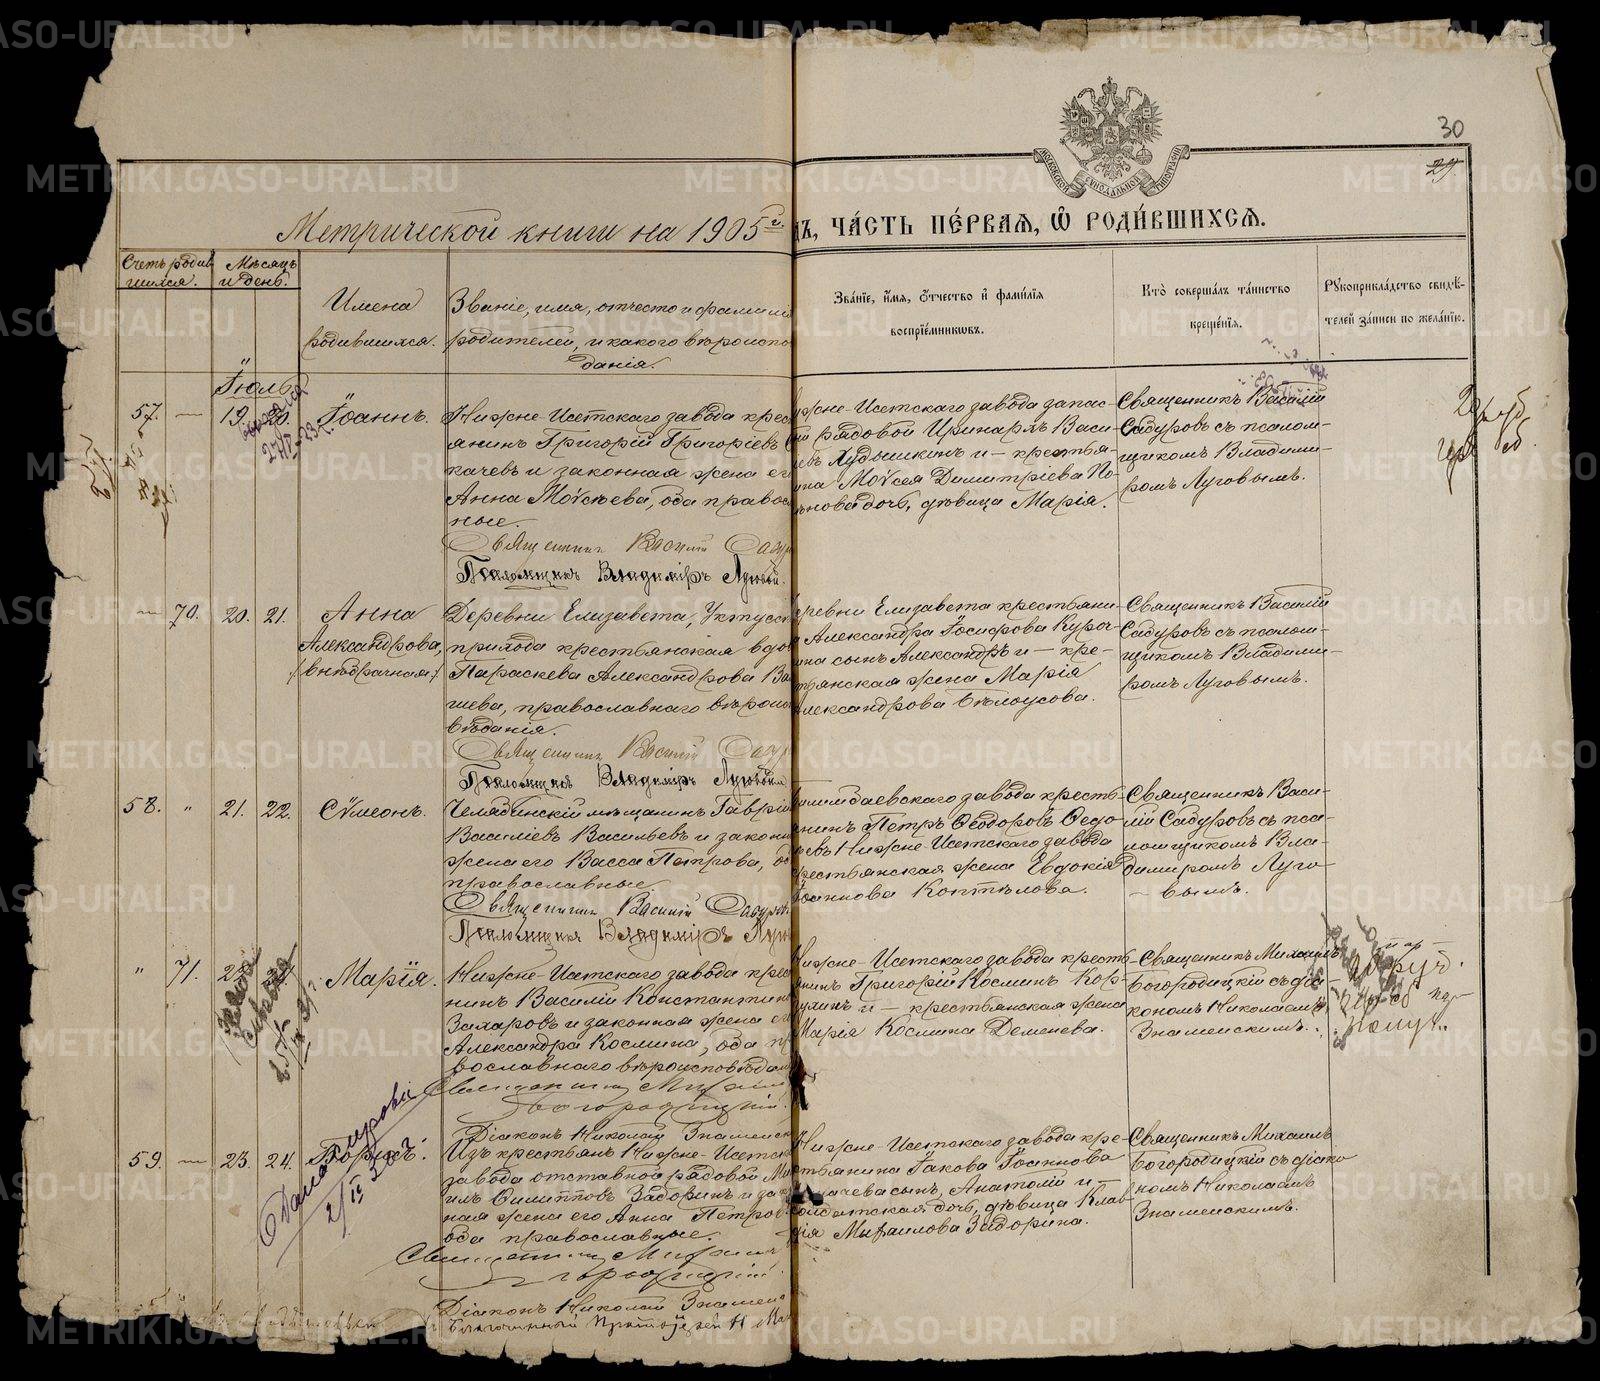 30
29
МОСКОВСКОЙ СѴНОДАЛЬНОЙ ТИПОГРАФІИ
Метрической книги на 1905 г.
дъ, ча́сть пе́рвая, ѡ҆ роди́вшихсѧ.
Счетъ родив
шихся.
Мѣсяцъ
и день.
Имена
родившихся.
Званіе, имя, отчество и фамилія
родителей, и какого вѣроиспо
данія.
Зва́нїе, и҆́мѧ, ѻ҆́тчество и҆ фами́лїѧ
воспрїе́мникѡвъ.
Кто̀ соверша́лъ та́инство
креще́нїѧ.
Рꙋкоприкла́дство свидѣ́-
телей за́писи по жела́нїю.
Іюль
57. — 19. 20. Іоаннъ.
Нижне-Исетскаго завода крес
янинъ Григорій Григоріевъ
качевъ и законная жена ег
Анна Моѵсеева, оба правос
ные.
Священникъ Василій Садур
Псаломщикъ Владиміръ Луговой.
жне-Исетскаго завода запас-
рядовой Иринархъ Васи-
евъ Худышкинъ и — крестья-
ина Моѵсея Димитріева По
нова дочь, дѣвица Марія.
Священникъ Василій
Садуровъ съ псалом-
щикомъ Владими-
ромъ Луговымъ.
— 70. 20. 21. Анна
Александрова,
/внѣбрачная/
Деревни Елизавета, Уктусск
прихода крестьянская вдов
Параскева Александрова Ва
шева, православнаго вѣроис
вѣданія.
Священникъ Василій Садур
Псаломщикъ Владиміръ Луговой
еревни Елизавета крестьяни-
а Александра Іосифова Кузоч-
ина сынъ Александръ и — кре-
тьянская жена Марія
Александрова Бѣлоусова.
Священникъ Василій
Садуровъ съ псалом-
щикомъ Владими-
ромъ Луговымъ.
58. " 21. 22. Сѵмеонъ.
Челябинскій мѣщанинъ Гавріи
Василіевъ Васильевъ и законн
жена его Васса Петрова, об
православные.
Священникъ Василій Садуров
Псаломщикъ Владиміръ Луго
илимбаевскаго завода кресть-
янинъ Петръ Ѳеодоровъ Ѳедо-
евъ Нижне-Исетскаго завода
рестьянская жена Евдокія
Іоаннова Коптѣлова.
Священникъ Васи-
лій Садуровъ съ пса-
ломщикомъ Вла-
димиромъ Луго-
вымъ.
" 71. 22. Марія.
Нижне-Исетскаго завода крес
нинъ Василій Константин
Захаровъ и законная жена ег
Александра Космина, оба пр
вославнаго вѣроисповѣдан
Священникъ Михаилъ
Богородицкій.
Діаконъ Николай Знаменск
Нижне-Исетскаго завода кресть-
янинъ Григорій Косминъ Кор-
и — крестьянская жена
Марія Космина Деменева.
Священникъ Михаилъ
Богородицкій съ діа
кономъ Николаемъ
Знаменскимъ.
59. — 23. 24. Борисъ.
Изъ крестьянъ Нижне-Исетск
завода отставной рядовой Ми
илъ Филипповъ Задоринъ и зак
ная жена его Анна Петров
оба православные.
Священникъ Михаилъ
Богородицкій.
Діаконъ Николай Знамен
Благочинный Протоіерей Н
Нижне-Исетскаго завода кре-
стьянина Іакова Іоаннова
сынъ, Анатолій и —
солдатская дочь, дѣвица Клав-
дія Михаилова Задорина.
Священникъ Михаилъ
Богородицкій съ діако
номъ Николаемъ
Знаменскимъ.
METRIKI.GASO-URAL.RU